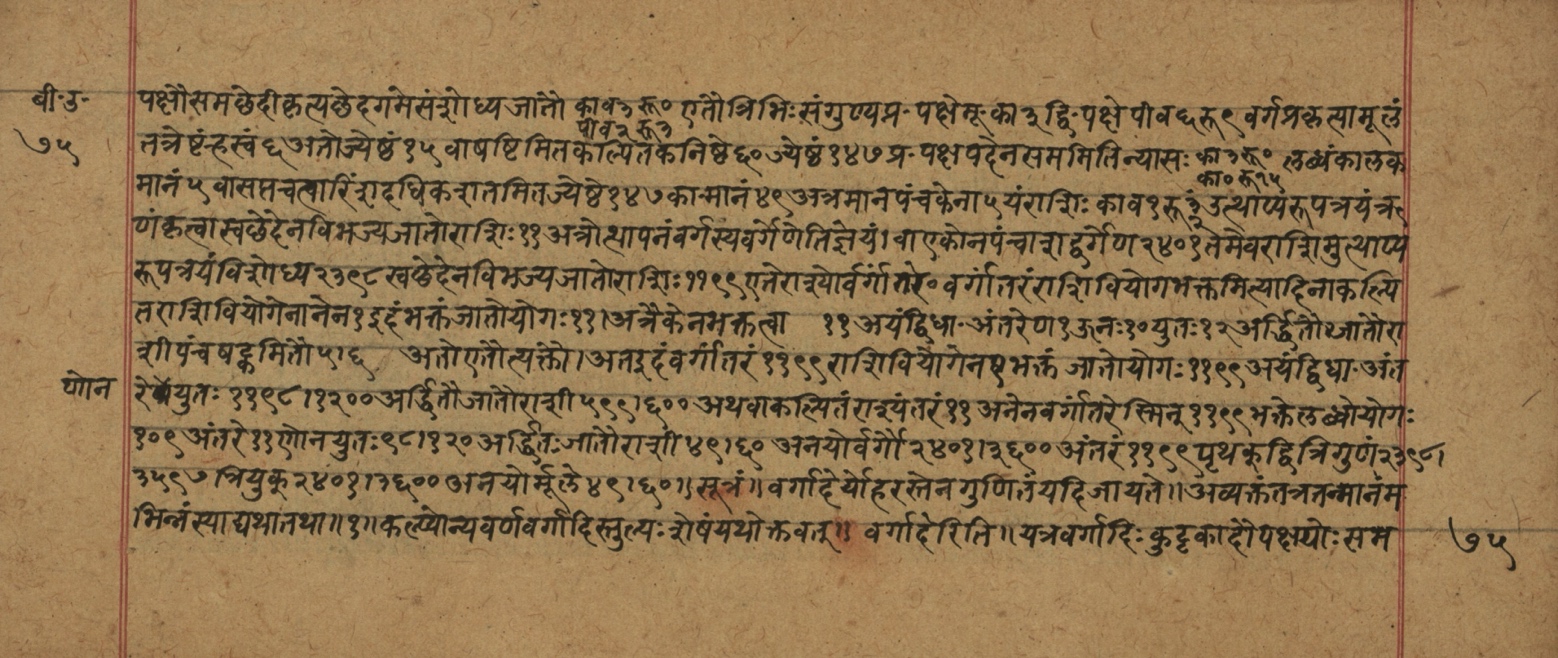 बी॰ उ॰
७५
पक्षौसमछेदीकृत्यछेदगमेसंशोध्यजातौ काव३रू० एतौत्रिभिःसंगुण्यप्र॰पक्षेमू॰का३द्वि॰पक्षेपीव६रू९वर्गप्रकृत्यामूलं
पीव२रू३
तत्रेष्टंह्रस्वं६अतोज्येष्ठं१५वाषष्टिमितकल्पितकनिष्ठे६०ज्येष्ठं१४७प्र॰पक्षपदेनसममितिन्यासः का३रू० लब्धंकालक
का०रू१५
मानं५वासप्तचत्वारिंशदधिकशतमितज्येष्ठे१४७कामानं४९अत्रमानपंचकेना५यंराशिः काव१रू३ उत्थाप्यरूपत्रयंऋ
णंकृत्वास्वछेदेनविभज्यजातोराशिः११अत्रोत्थापनंवर्गस्यवर्गेणेतिज्ञेयं।वाएकोनपंचाशद्वर्गेण२४०१तमेवराशिमुत्थाप्य
रूपत्रयंविशोध्य२३९८स्वछेदेनविभज्यजातोराशिः११९९एतेराश्योर्वर्गांतरे॰वर्गांतरंराशिवियोगभक्तमित्यादिनाकल्पि
तराशिवियोगेनानेन१इदंभक्तंजातोयोगः११।अत्रैकेनभक्तत्वा ११अयंद्विधा॰अंतरेण१ऊनः१०युतः१२अर्द्धितौजातौरा
शीपंचषट्कमितौ५।६ अतोएतौत्यक्तौ।अतइदंवर्गांतरं११९९राशिवियोगेनभक्तं जातोयोगः११९९अयंद्विधा॰अंत
णोन
रेयुतः११९८।१२००अर्द्धितौजातौराशी५९९।६००अथवाकल्पितंराश्यंतरं११अनेनवर्गांतरेस्मिन्११९९भक्तेलब्धोयोगः
१०९अंतरे११णोनयुतः९८।१२०अर्द्धितःजातौराशी४९।६०अनयोर्वर्गौ२४०१।३६००अंतरं११९९पृथक्द्वित्रिगुणं२३९८।
३५९७त्रियुक्२४०१।३६००अनयोर्मूले४९।६०॥सूत्रं॥वर्गादेर्योहरस्तेनगुणितंयदिजायते॥अव्यक्तंतत्रतन्मानंम
भिन्नंस्याद्यथातथा॥१॥कल्प्योन्यवर्णवर्गादिस्तुल्यःशेषंयथोक्तवत्॥ वर्गादेरिति॥यत्रवर्गादिःकुट्टकादौपक्षयोःसम
७५